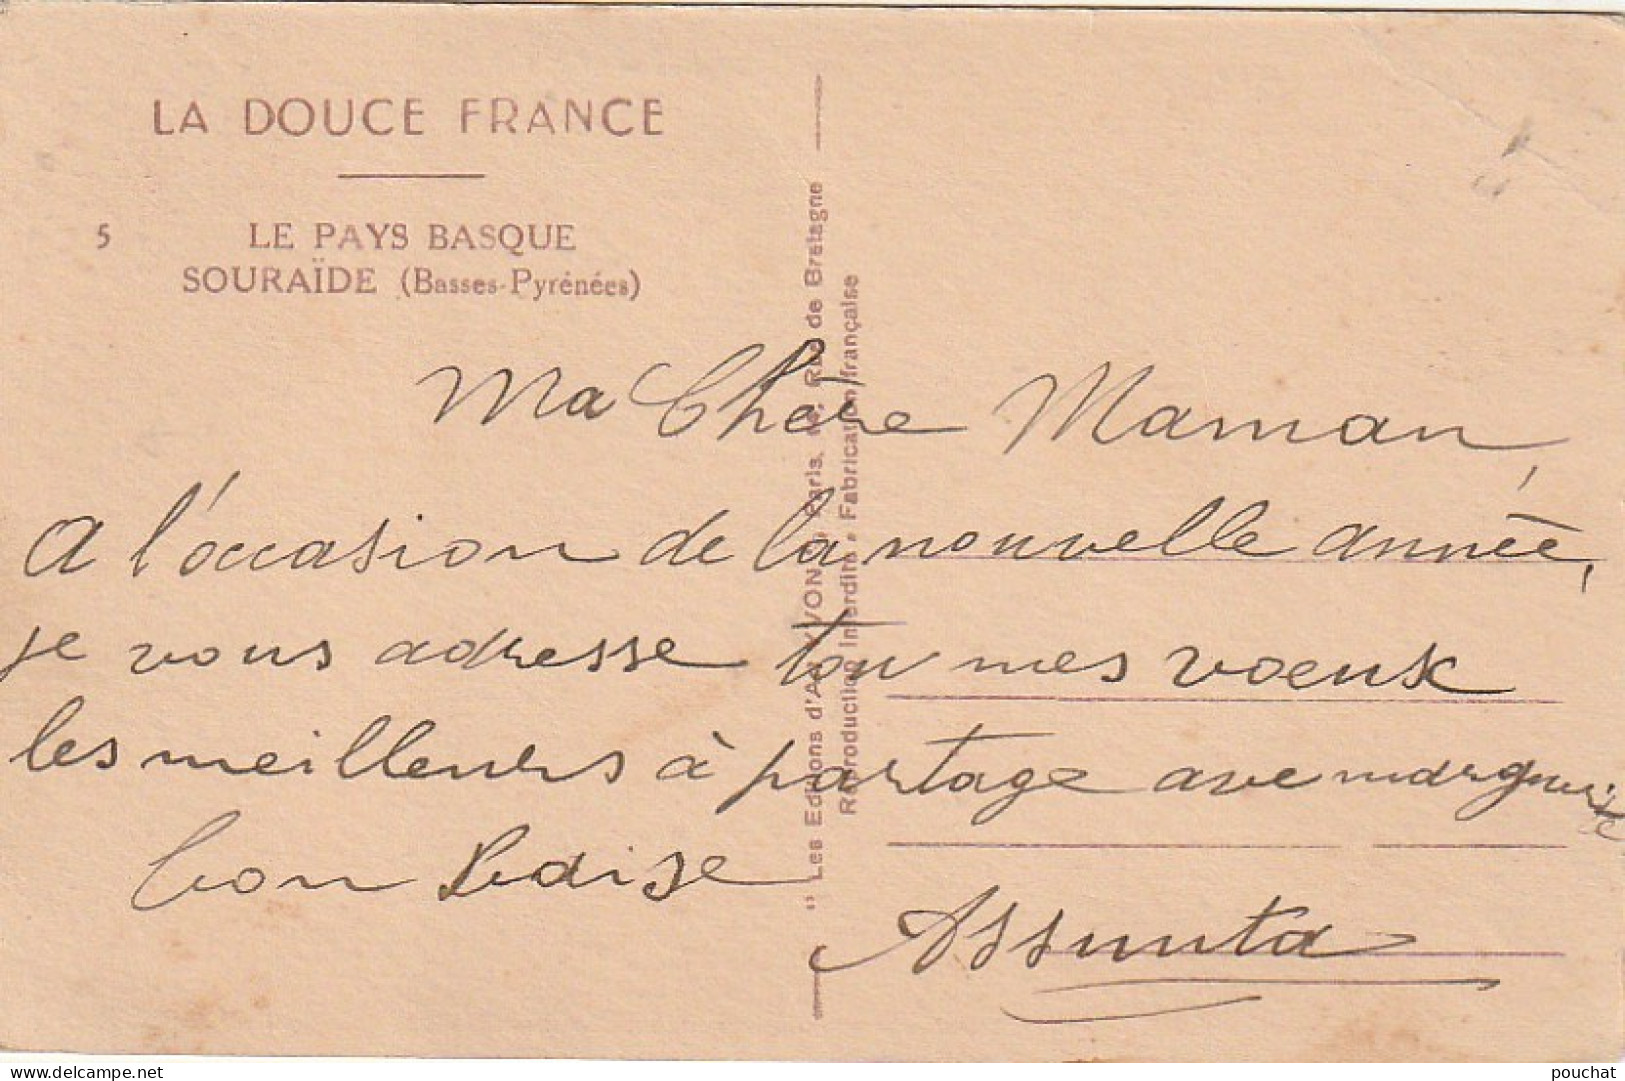 LA DOUCE FRANCE
5 LE PAYS BASQUE
SOURAÏDE (Basses-Pyrénées)
Ma Chère Maman,
A l'occasion de la nouvelle année,
je vous adresse tou mes voeux
les meilleurs à partage ave marguerite
bon baise
Assunta
" Les Editions d'Art YVON " Paris, Rue de Bretagne
Reproduction Interdite - Fabrication française
delcampe.net
pouchat